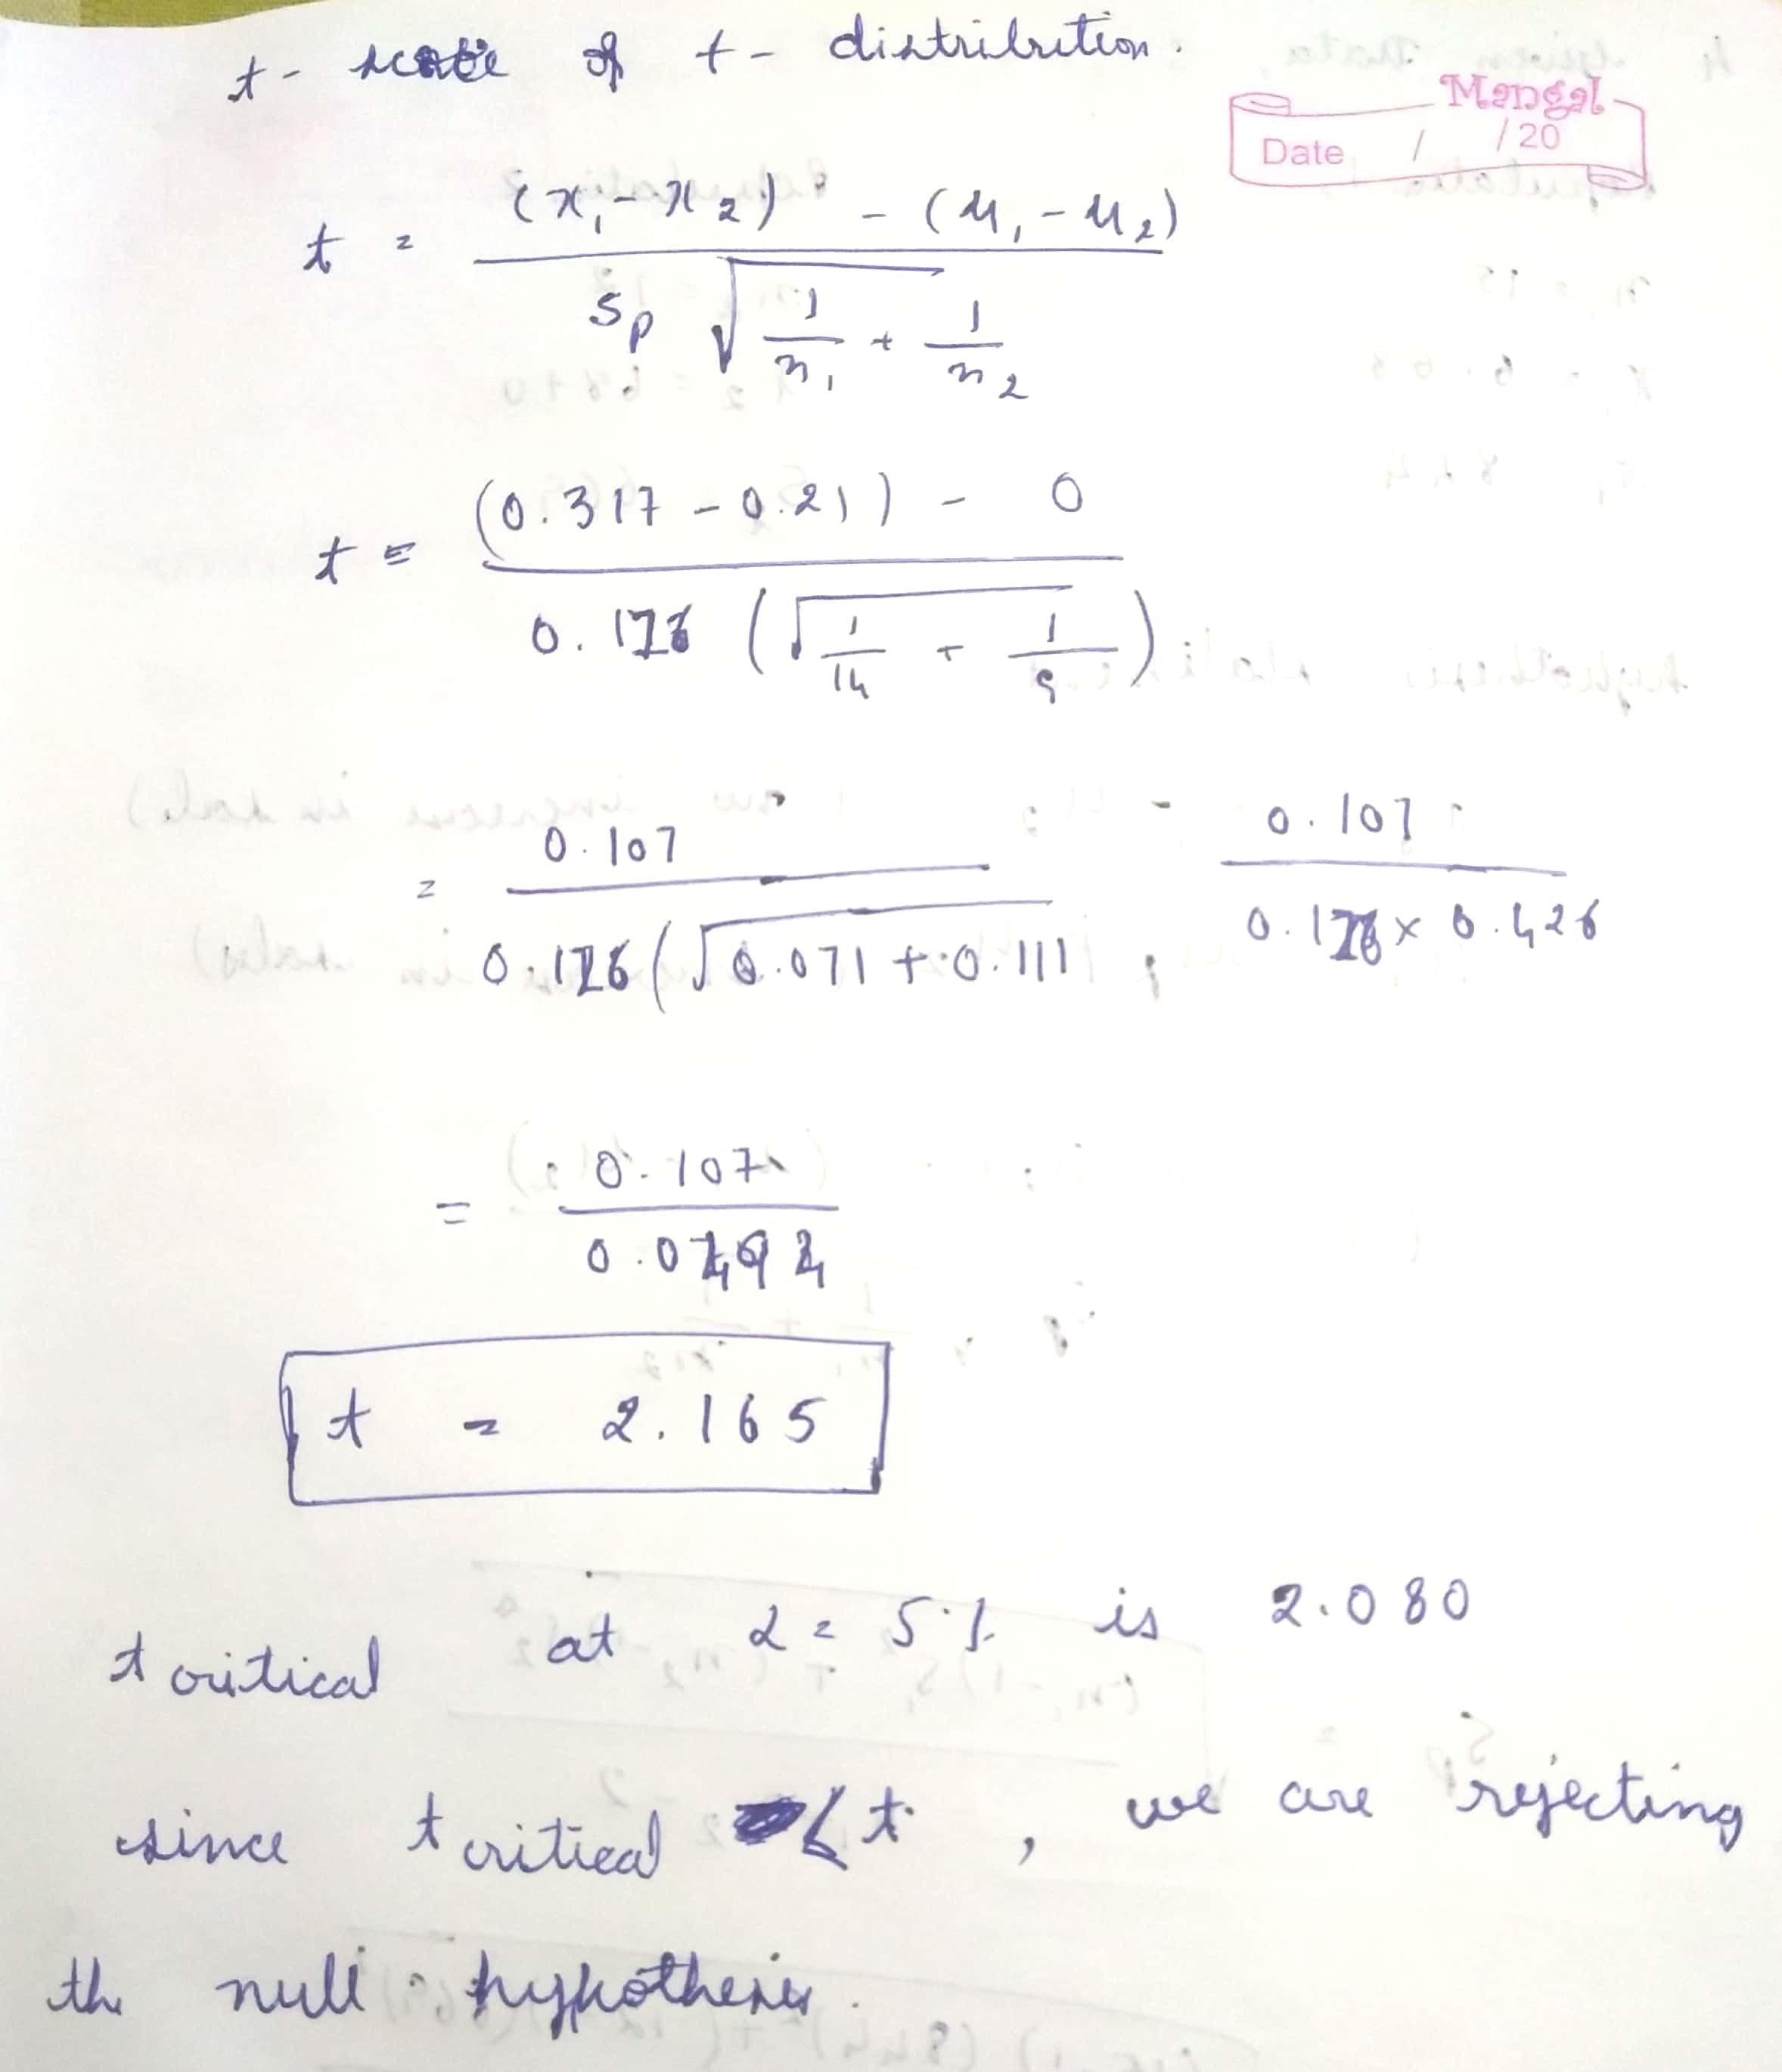 t - score of t - distribution.
Mangal
Date / /20
t = (x₁ - x₂) - (μ₁ - μ₂) / Sp √ 1/n₁ + 1/n₂
t = (0.317 - 0.21) - 0 / 0.116 (√ 1/14 + 1/9)
= 0.107 / 0.116 (√0.071 + 0.111 , 0.107 / 0.116 × 0.426
= 0.107 / 0.0494
t = 2.165
t critical at α = 5% is 2.080
since t critical < t , we are rejecting
the null hypothesis.